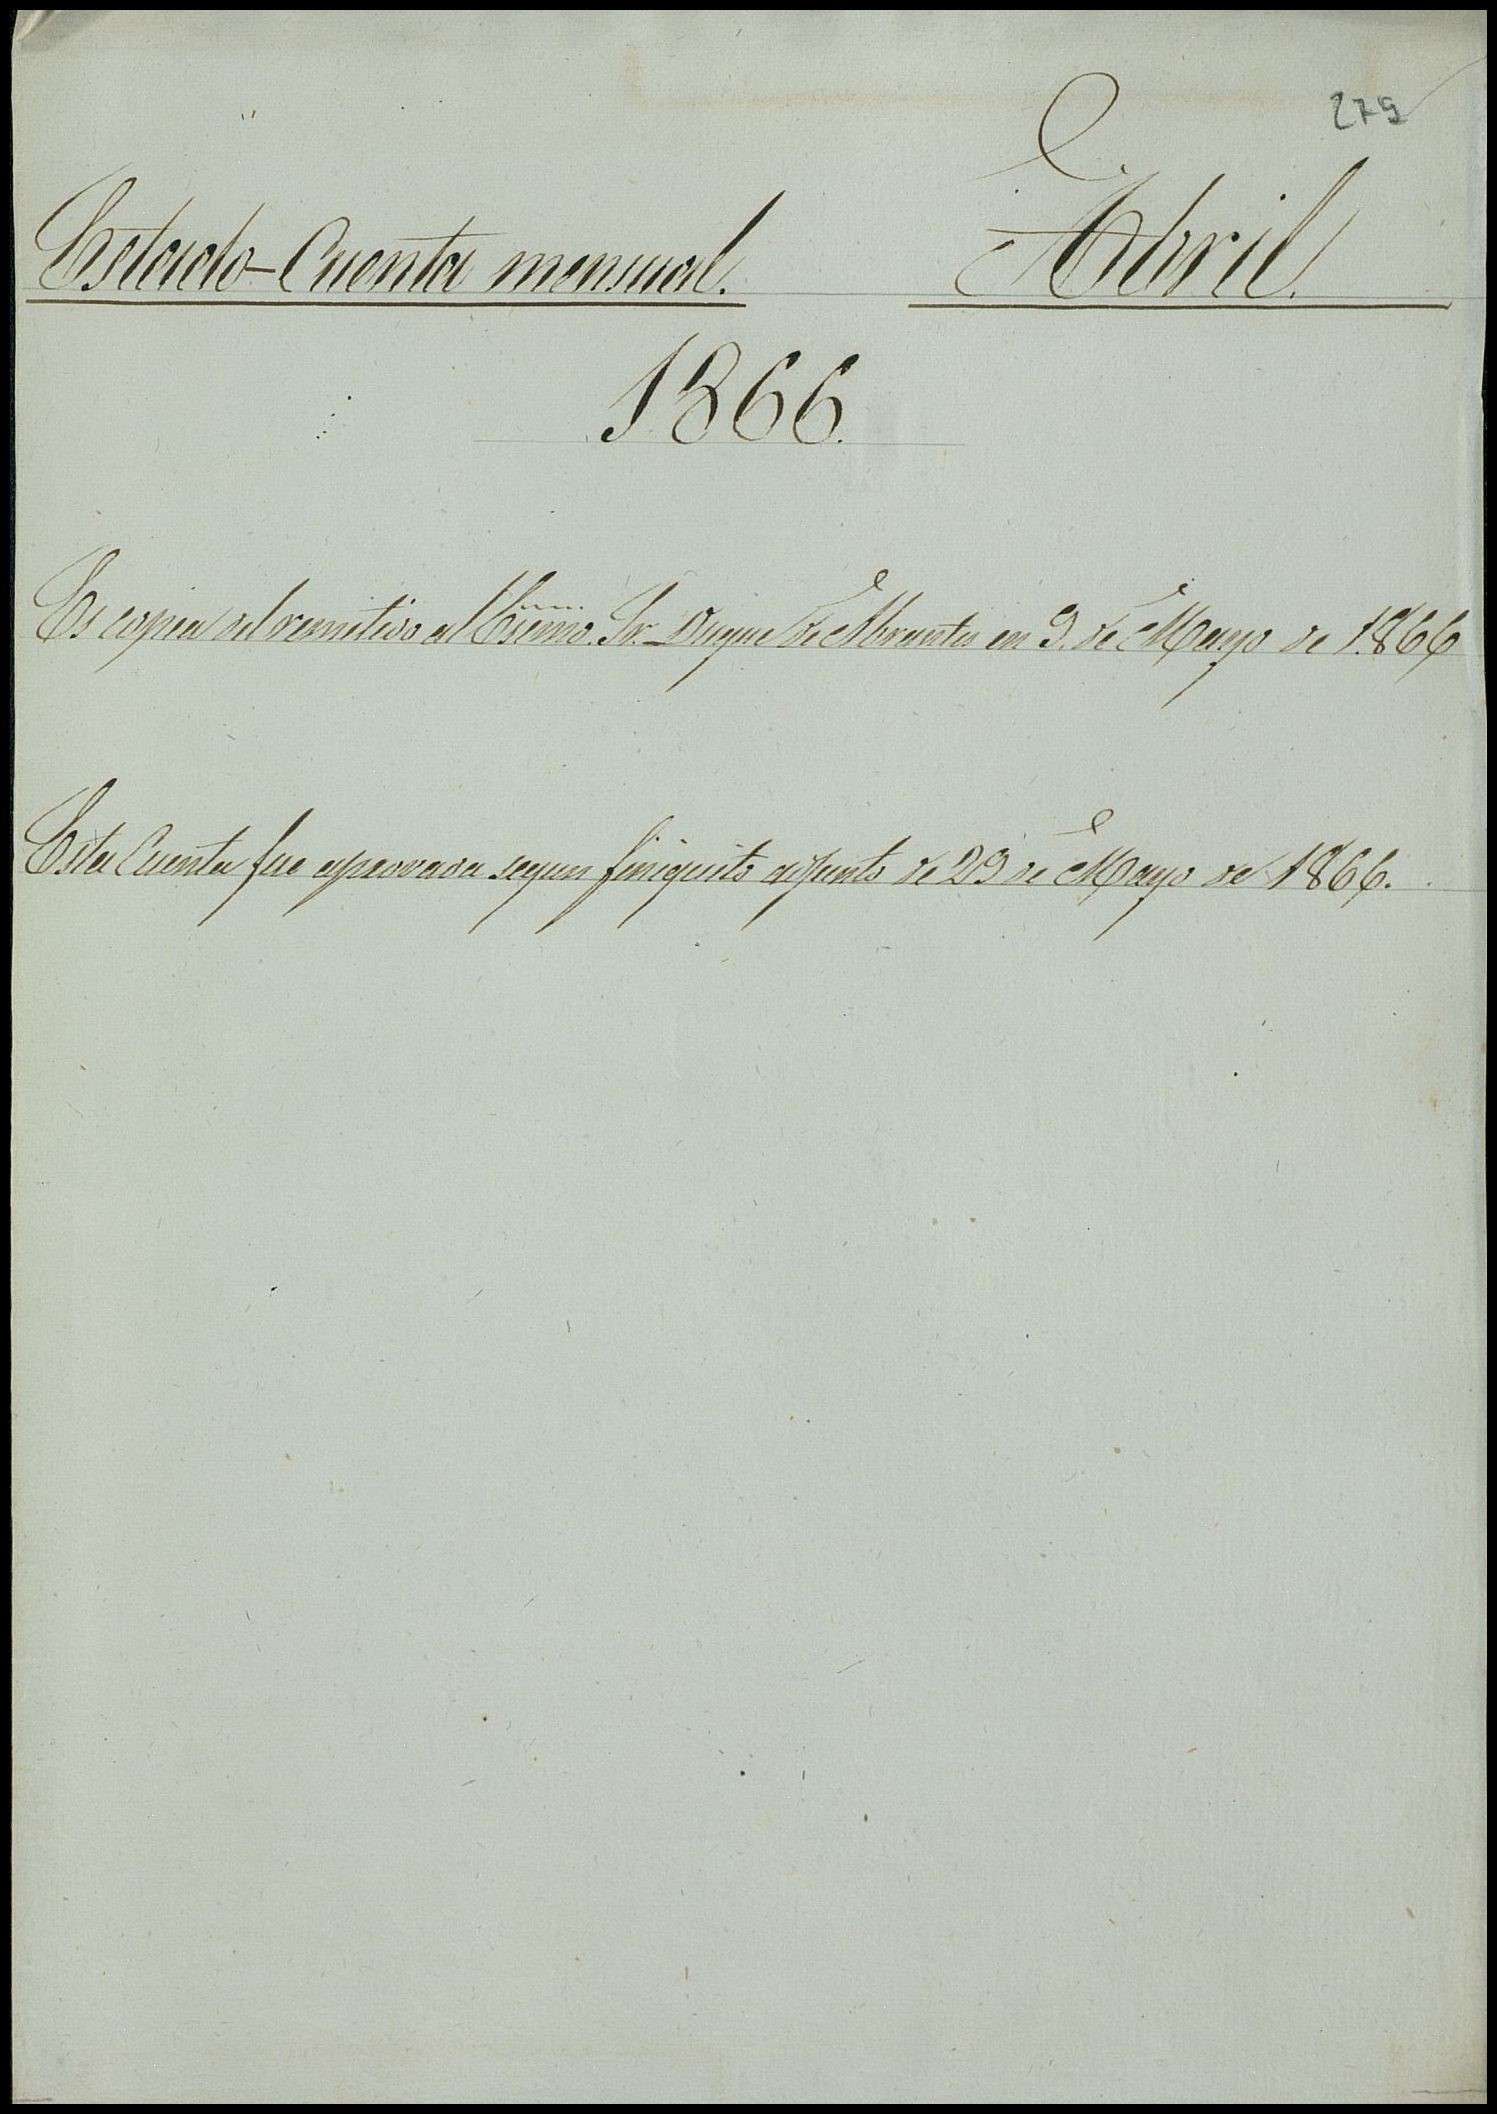 279
Estado-Cuenta mensual. Abril.
1866.
Es copia del remitido al Excmo. Sr. Duque de Abrantes en 9. de Mayo de 1866
Esta Cuenta fue aprovada segun finiquito adjunto de 29 de Mayo de 1866.